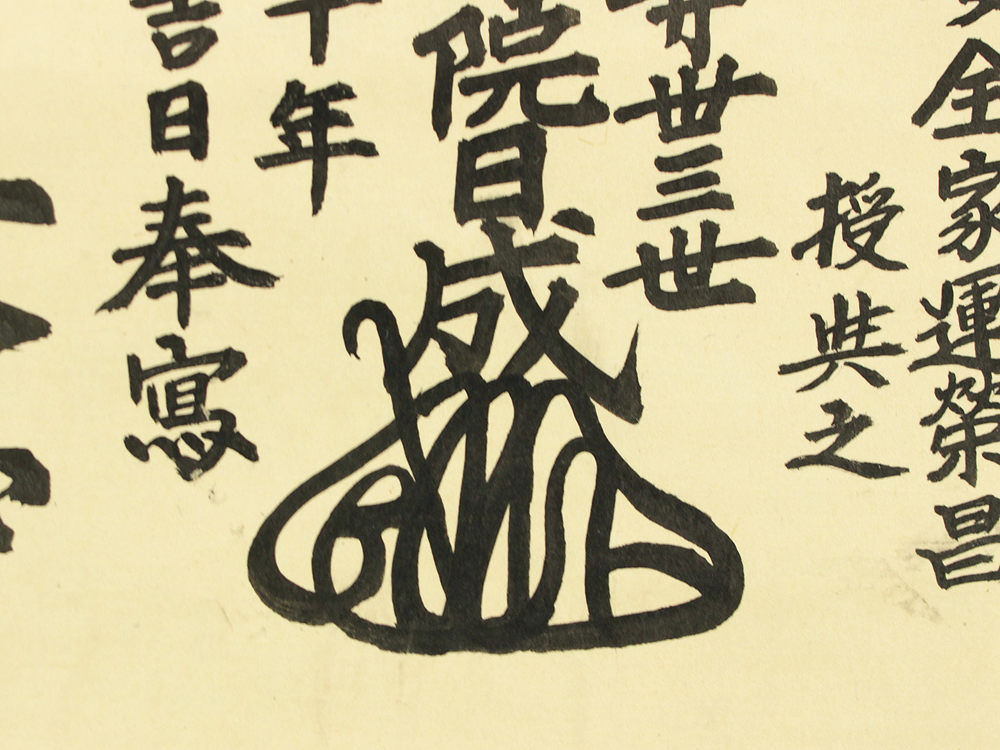 全家運榮昌
授與之
丗三世
院日成
年
吉日奉寫